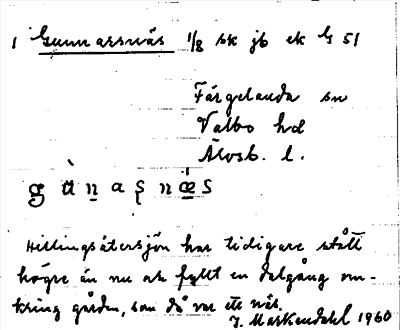 1 Gunnarsnäs 1/8 sk jb ek G 51
Färgelanda sn
Valbo hd
Älvsb. l.
gùn̲aʂnǽ̲s
Hillingsätersjön har tidigare stått
högre än nu och fyllt en dalgång om-
kring gården, som då var ett näs.
J. Markendahl 1960